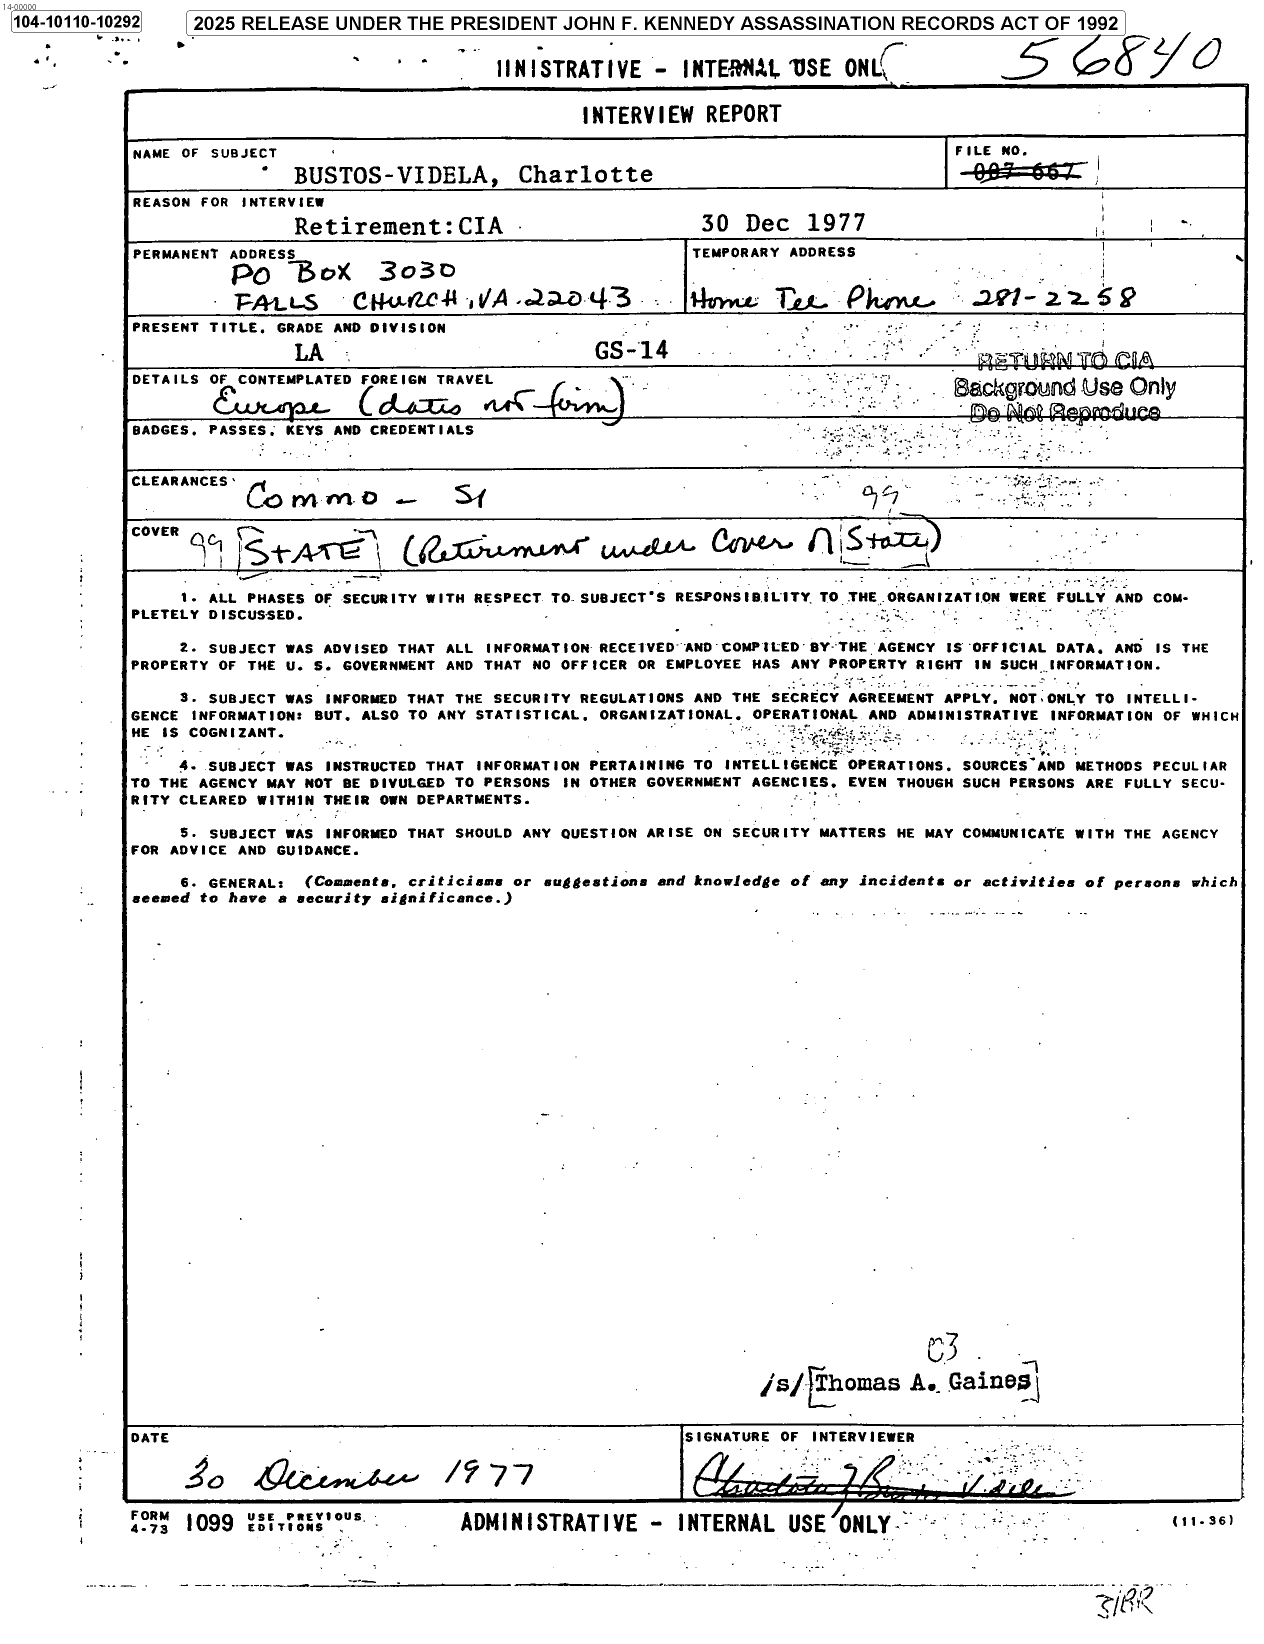 14-00000
104-10110-10292
2025 RELEASE UNDER THE PRESIDENT JOHN F. KENNEDY ASSASSINATION RECORDS ACT OF 1992
56840
IINISTRATIVE - INTERNAL USE ONL
INTERVIEW REPORT
NAME OF SUBJECT
BUSTOS-VIDELA, Charlotte
FILE NO.
087-667
REASON FOR INTERVIEW
Retirement:CIA 30 Dec 1977
PERMANENT ADDRESS
PO BOX 3030
FALLS CHURCH, VA. 22043
TEMPORARY ADDRESS
Home Tee Phone 281-2258
PRESENT TITLE, GRADE AND DIVISION
LA GS-14
RETURN TO CIA
Background Use Only
Do Not Reproduce
DETAILS OF CONTEMPLATED FOREIGN TRAVEL
Europe (dates not firm)
BADGES, PASSES, KEYS AND CREDENTIALS
CLEARANCES
Commo - SI 99
COVER
99 [STATE] (Retirement under Cover [State])
1. ALL PHASES OF SECURITY WITH RESPECT TO SUBJECT'S RESPONSIBILITY TO THE ORGANIZATION WERE FULLY AND COM-
PLETELY DISCUSSED.
2. SUBJECT WAS ADVISED THAT ALL INFORMATION RECEIVED AND COMPILED BY THE AGENCY IS OFFICIAL DATA, AND IS THE
PROPERTY OF THE U. S. GOVERNMENT AND THAT NO OFFICER OR EMPLOYEE HAS ANY PROPERTY RIGHT IN SUCH INFORMATION.
3. SUBJECT WAS INFORMED THAT THE SECURITY REGULATIONS AND THE SECRECY AGREEMENT APPLY, NOT ONLY TO INTELLI-
GENCE INFORMATION: BUT, ALSO TO ANY STATISTICAL, ORGANIZATIONAL, OPERATIONAL AND ADMINISTRATIVE INFORMATION OF WHICH
HE IS COGNIZANT.
4. SUBJECT WAS INSTRUCTED THAT INFORMATION PERTAINING TO INTELLIGENCE OPERATIONS, SOURCES AND METHODS PECULIAR
TO THE AGENCY MAY NOT BE DIVULGED TO PERSONS IN OTHER GOVERNMENT AGENCIES, EVEN THOUGH SUCH PERSONS ARE FULLY SECU-
RITY CLEARED WITHIN THEIR OWN DEPARTMENTS.
5. SUBJECT WAS INFORMED THAT SHOULD ANY QUESTION ARISE ON SECURITY MATTERS HE MAY COMMUNICATE WITH THE AGENCY
FOR ADVICE AND GUIDANCE.
6. GENERAL: (Comments, criticisms or suggestions and knowledge of any incidents or activities of persons which
seemed to have a security significance.)
03
/s/ [Thomas A. Gaines]
DATE
30 December 1977
SIGNATURE OF INTERVIEWER
Charlotte Z Bustos Videla
FORM 4-73 1099 USE PREVIOUS EDITIONS
ADMINISTRATIVE - INTERNAL USE ONLY
(11-36)
3/BR